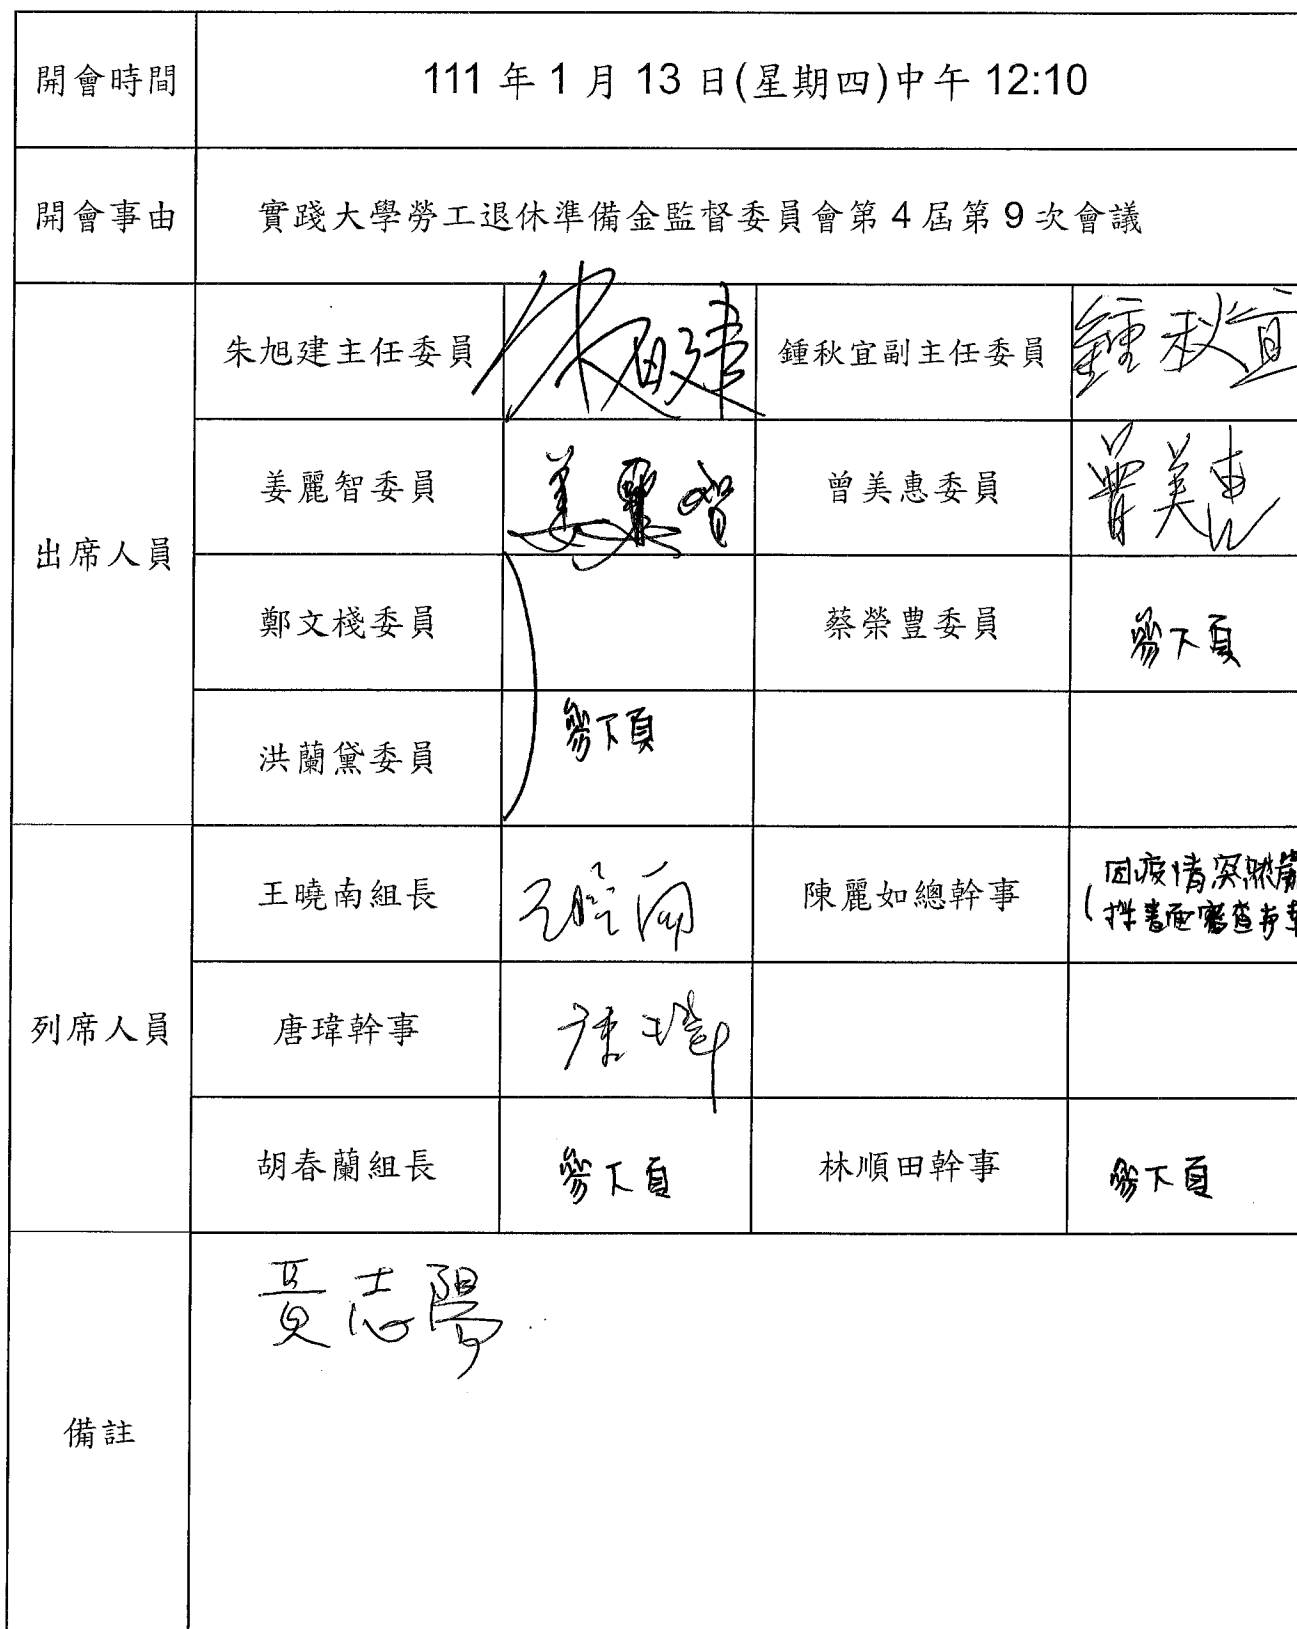 開會時間 111 年 1 月 13 日(星期四)中午 12:10
開會事由 實踐大學勞工退休準備金監督委員會第 4 屆第 9 次會議
出席人員
朱旭建主任委員 朱旭建 鍾秋宜副主任委員 鍾秋宜
姜麗智委員 姜麗智 曾美惠委員 曾美惠
鄭文棧委員 蔡榮豊委員 參下頁
洪蘭黛委員 參下頁
列席人員
王曉南組長 王曉南 陳麗如總幹事 (因疫情
書面審查
唐瑋幹事 唐瑋
胡春蘭組長 參下頁 林順田幹事 參下頁
備註
黃志陽